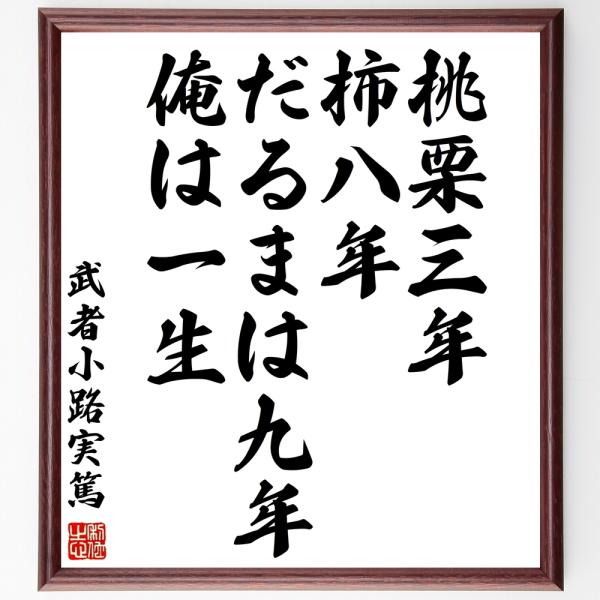 桃栗三年
柿八年
だるまは九年
俺は一生
武者小路実篤